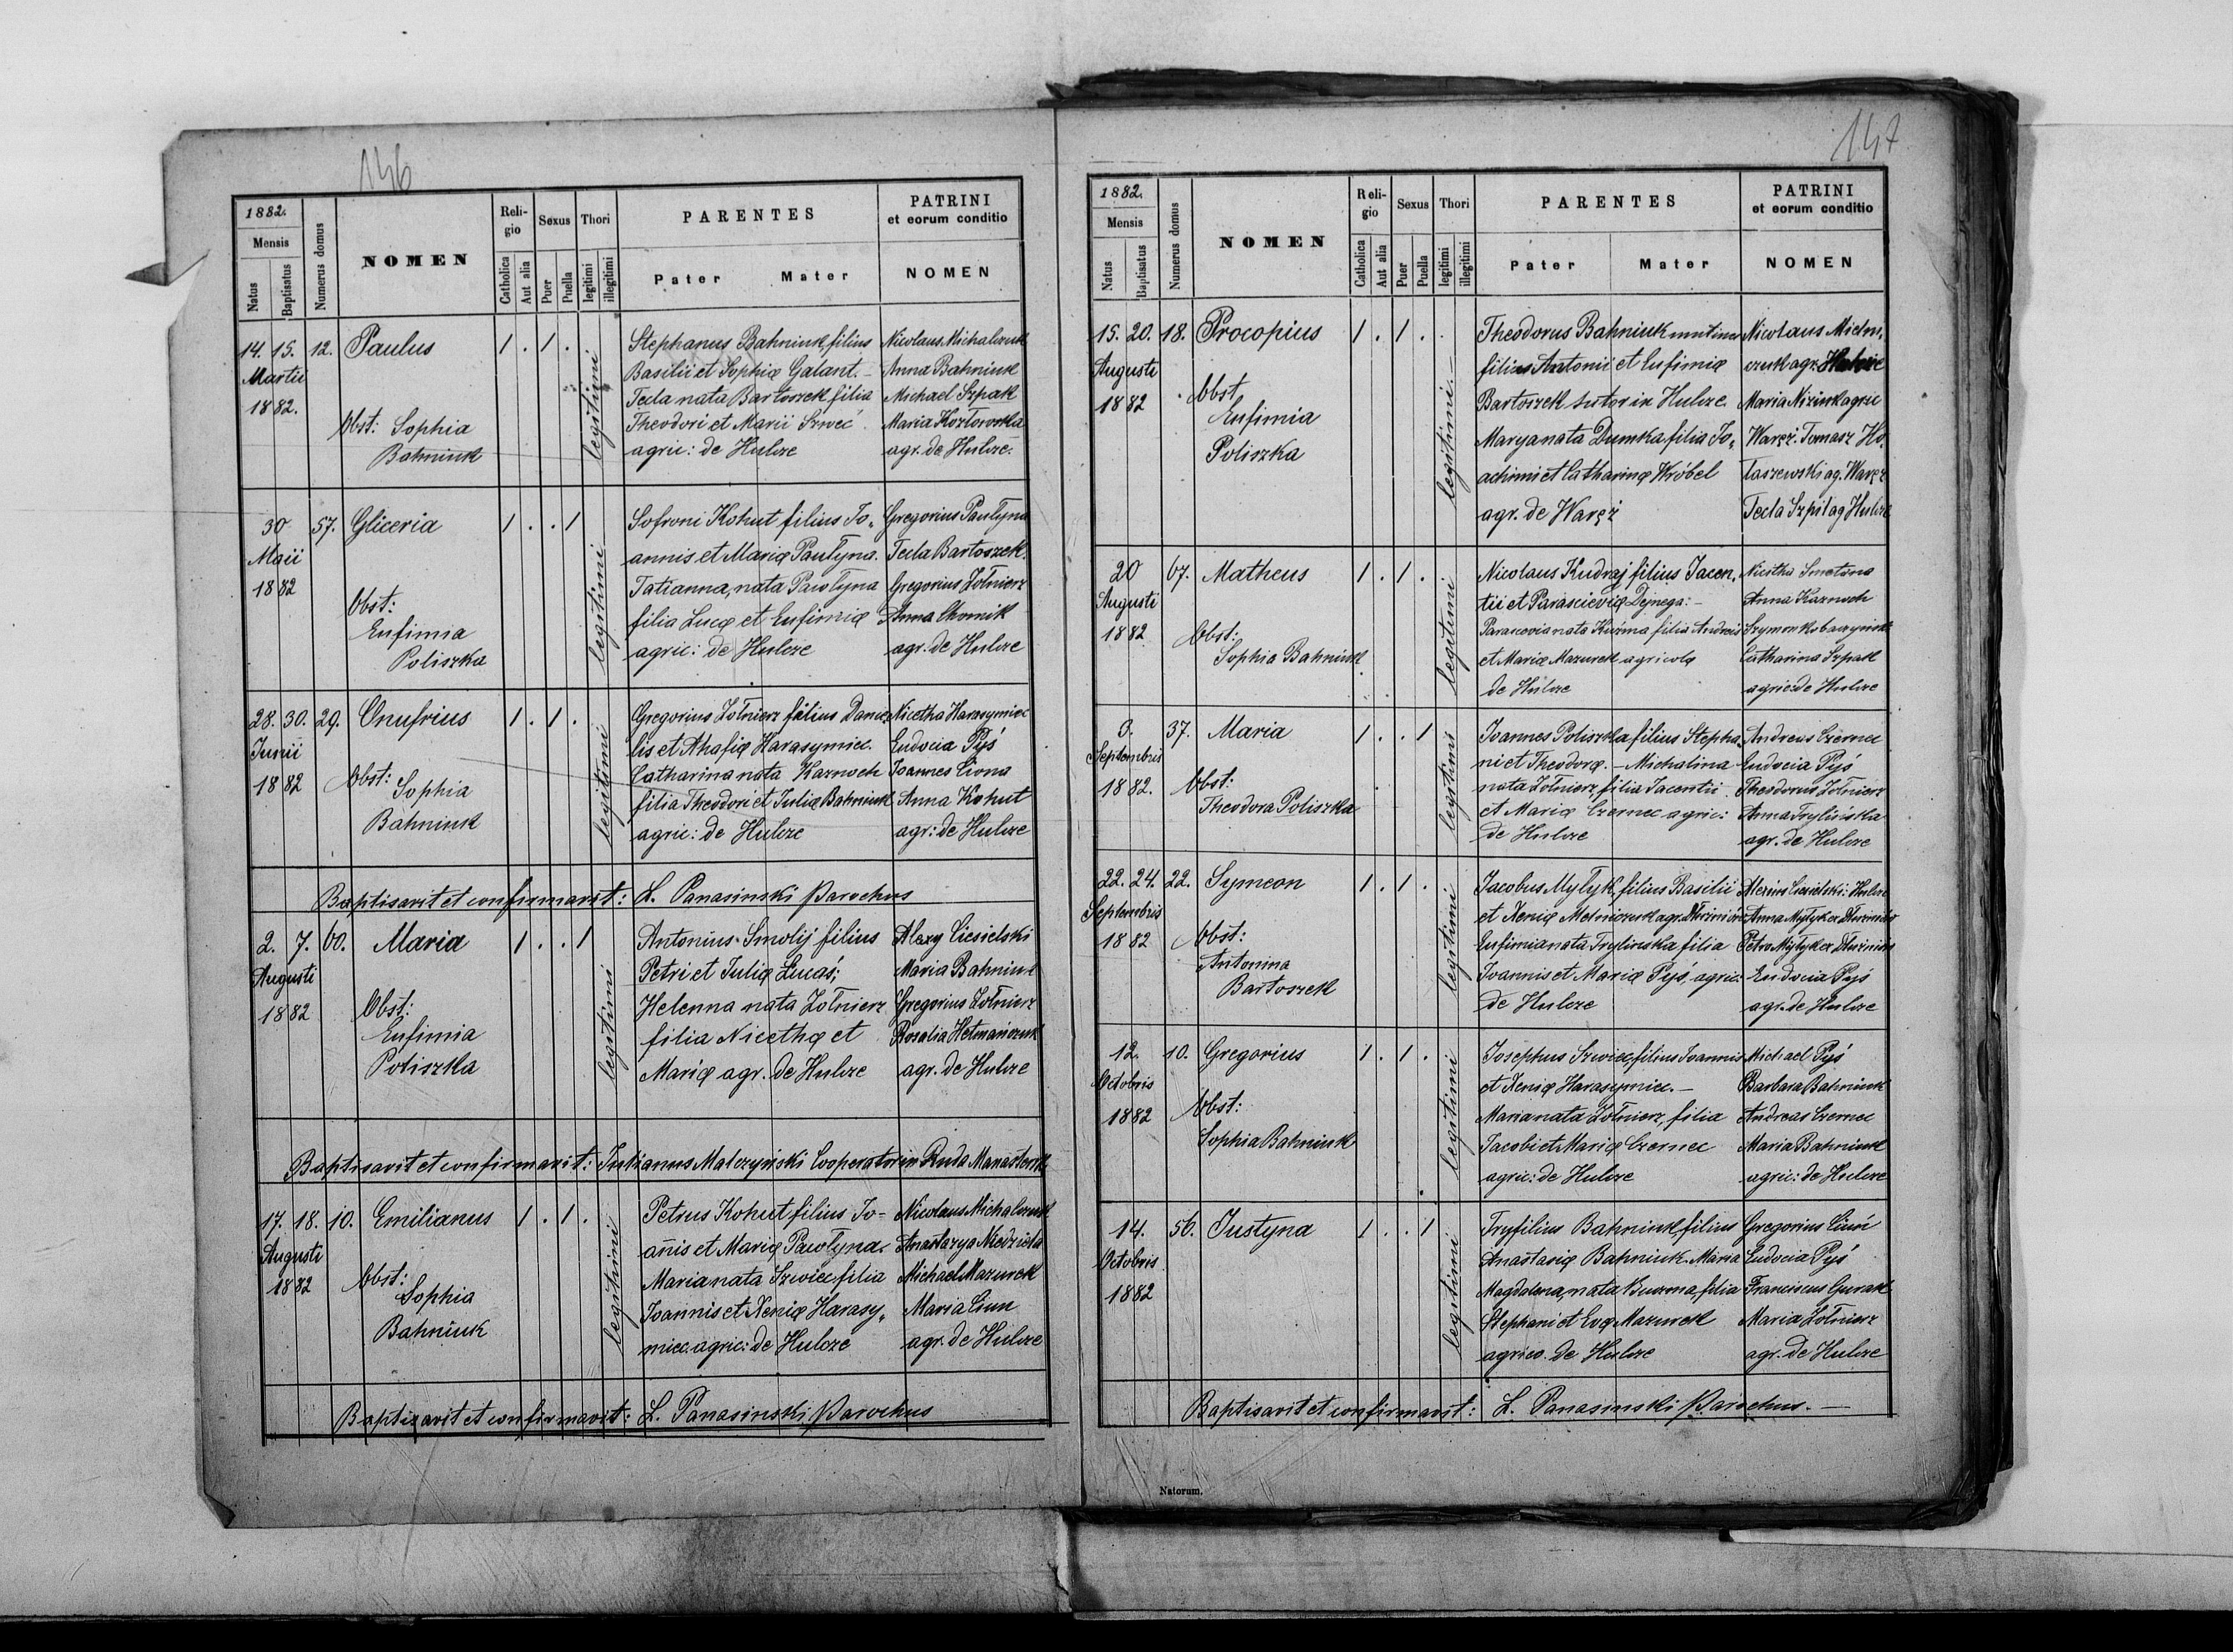 146
1882.
Mensis
Natus
Baptisatus
Numerus domus
NOMEN
Religio
Catholica
Aut alia
Sexus
Puer
Puella
Thori
legitimi
illegitimi
PARENTES
Pater Mater
PATRINI
et eorum conditio
NOMEN
14. 15. 12. Paulus 1 . 1 .
Martii
1882.
Obst: Sophia
Bahniuk
legitimi
Stephanus Bahniuk, filius
Basilii et Sophiæ Galant. –
Tecla nata Bartoszek filia
Theodori et Marii Szwec
agric: de Hulcze
Nicolaus Michalczuk
Anna Bahniuk
Michael Szpak
Maria Kozłowska
agr. de Hulcze.
30 57. Gliceria 1 . . 1
Maii
1882
Obst:
Eufimia
Poliszka
legitimi
Sofroni Kohut filius Jo„
annis et Mariæ Pawłyna.
Tatianna, nata Pawłyna
filia Lucæ et Eufimiæ
agric: de Hulcze
Gregorius Pawłyna
Tecla Bartoszek.
Gregorius Żołnierz
Anna Chomik
agr. de Hulcze
28. 30. 29. Onufrius 1 . 1 .
Junii
1882
Obst: Sophia
Bahniuk
legitimi
Gregorius Żołnierz filius Danie„
lis et Ahafiæ Harasymiec.
Catharina nata Karnoch
filia Theodori et Juliæ Bahniuk
agric: de Hulcze
Nicetha Harasymiec
Eudocia Pyś
Joannes Ciona
Anna Kohut
agr: de Hulcze
Baptisavit et confirmavit: L. Panasinski Parochus
2. 7. 60. Maria 1 . . 1
Augusti
1882
Obst:
Eufimia
Poliszka
legitimi
Antonius Smolij filius
Petri et Juliæ Lucaś;
Helenna nata Żołnierz
filia Nicethæ et
Mariæ agr. de Hulcze
Alexy Ciesielski
Maria Bahniuk
Gregorius Żołnierz
Rosalia Hetmańczuk
agr. de Hulcze
Baptisavit et confirmavit: Julianus Malczyński Cooperator in Ruda
17. 18. 10. Emilianus 1 . 1 .
Augusti
1882
Obst:
Sophia
Bahniuk
legitimi
Petrus Kohut filius Jo-
anis et Mariæ Pawłyna.
Maria nata Szwiec filia
Joannis et Xeniæ Harasy„
miec. agric: de Hulcze
Nicolaus Michalczuk
Anastazya
Michael Mazurek
Maria Ciun
agr. de Hulcze
Baptizavit et confirmavit: L. Panasinski Parochus
147
1882.
Mensis
Natus
Baptisatus
Numerus domus
NOMEN
Religio
Catholica
Aut alia
Sexus
Puer
Puella
Thori
legitimi
illegitimi
PARENTES
Pater Mater
PATRINI
et eorum conditio
NOMEN
15. 20. 18. Procopius 1 . 1 .
Augusti
1882
Obst
Eufimia
Poliszka
legitimi. –
Theodorus Bahniuk
filius Antonii et Eufimiæ
Bartoszek sutor in Hulcze.
Marya nata Dumka filia Jo„
achimi et Catharinæ Wróbel
agr. de Waręż
Nicolaus Michal„
czuk agr. Hulcze
Maria Niziuk agric
Waręż. Tomasz Ho„
łaszewski ag. Waręż
Tecla Szpił ag Hulcze
20 67. Matheus 1 . 1 .
Augusti
1882
Obst:
Sophia Bahniuk
legitimi
Nicolaus Kudraj filius Jacen„
tii et Parascieviæ Dejnega: –
Parascevia nata Kuzma filia Andreis
et Mariæ Mazurek agricolæ
de Hulcze
Nicetha Smetana
Anna Karnoch
Szymon
Catharina Szpak
agric: de Hulcze
37. Maria 1 . . 1
Septembris
1882.
Obst:
Theodora Poliszka
legitimi
Joannes Poliszka filius Stepha„
ni et Theodoræ. – Michalina
nata Żołnierz, filia Jacentii
et Mariæ Czernec agric:
de Hulcze
Andreas Czernec
Eudocia Pyś
Theodorus Żołnierz
Anna Trylińska
agr. de Hulcze
22. 24. 22. Symeon 1 . 1 .
Septembris
1882
Obst:
Antonina
Bartoszek
legitimi
Jacobus Mytyk, filius Basilii
et Xeniæ Melniczuk agr.
Eufimia nata Trylinska filia
Joannis et Mariæ Pyś, agric:
de Hulcze
Alexius Ciesielski: Hulcze
Anna Mytyk ex
Petro Mytyk ex
Eudocia Pyś
agr. de Hulcze
12. 10. Gregorius 1 . 1 .
Octobris
1882
Obst:
Sophia Bahniuk
legitimi
Josephus Szwiec filius Joannis
et Xeniæ Harasymiec. –
Maria nata Żołnierz, filia
Jacobi et Mariæ Czernec
agric: de Hulcze
Michael Pyś
Barbara Bahniuk
Andreas Czernec
Maria Bahniuk
agric: de Hulcze
14. 56. Justyna 1 . . 1
Octobris
1882
legitimi
Tryfilius Bahniuk, filius
Anastasiæ Bahniuk. Maria
Magdalena, nata Kuzma, filia
Stephani et Evæ Mazurek
agrico. de Hulcze
Gregorius Ciuń
Eudocia Pyś
Franciscus Gurak
Maria Żołnierz
agr. de Hulcze
Baptisavit et confirmavit: L. Panasinski Parochus. –
Natorum.